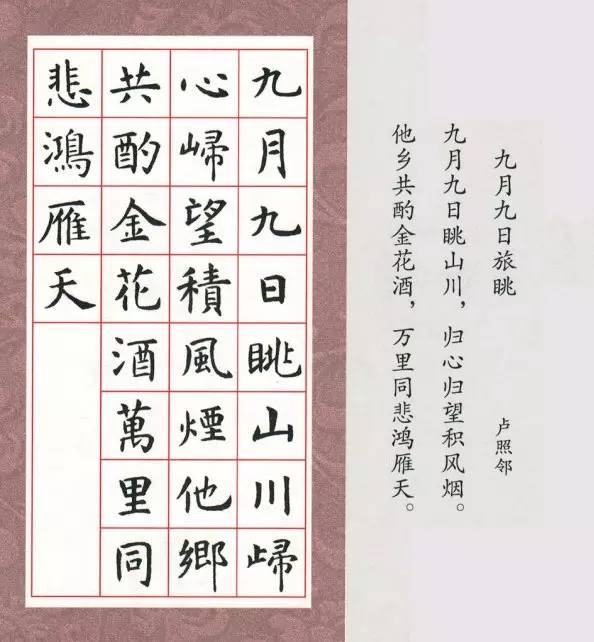 九月九日旅眺
卢照邻
九月九日眺山川，归心归望积风烟。
他乡共酌金花酒，万里同悲鸿雁天。
九月九日眺山川歸
心歸望積風煙他鄉
共酌金花酒萬里同
悲鴻雁天